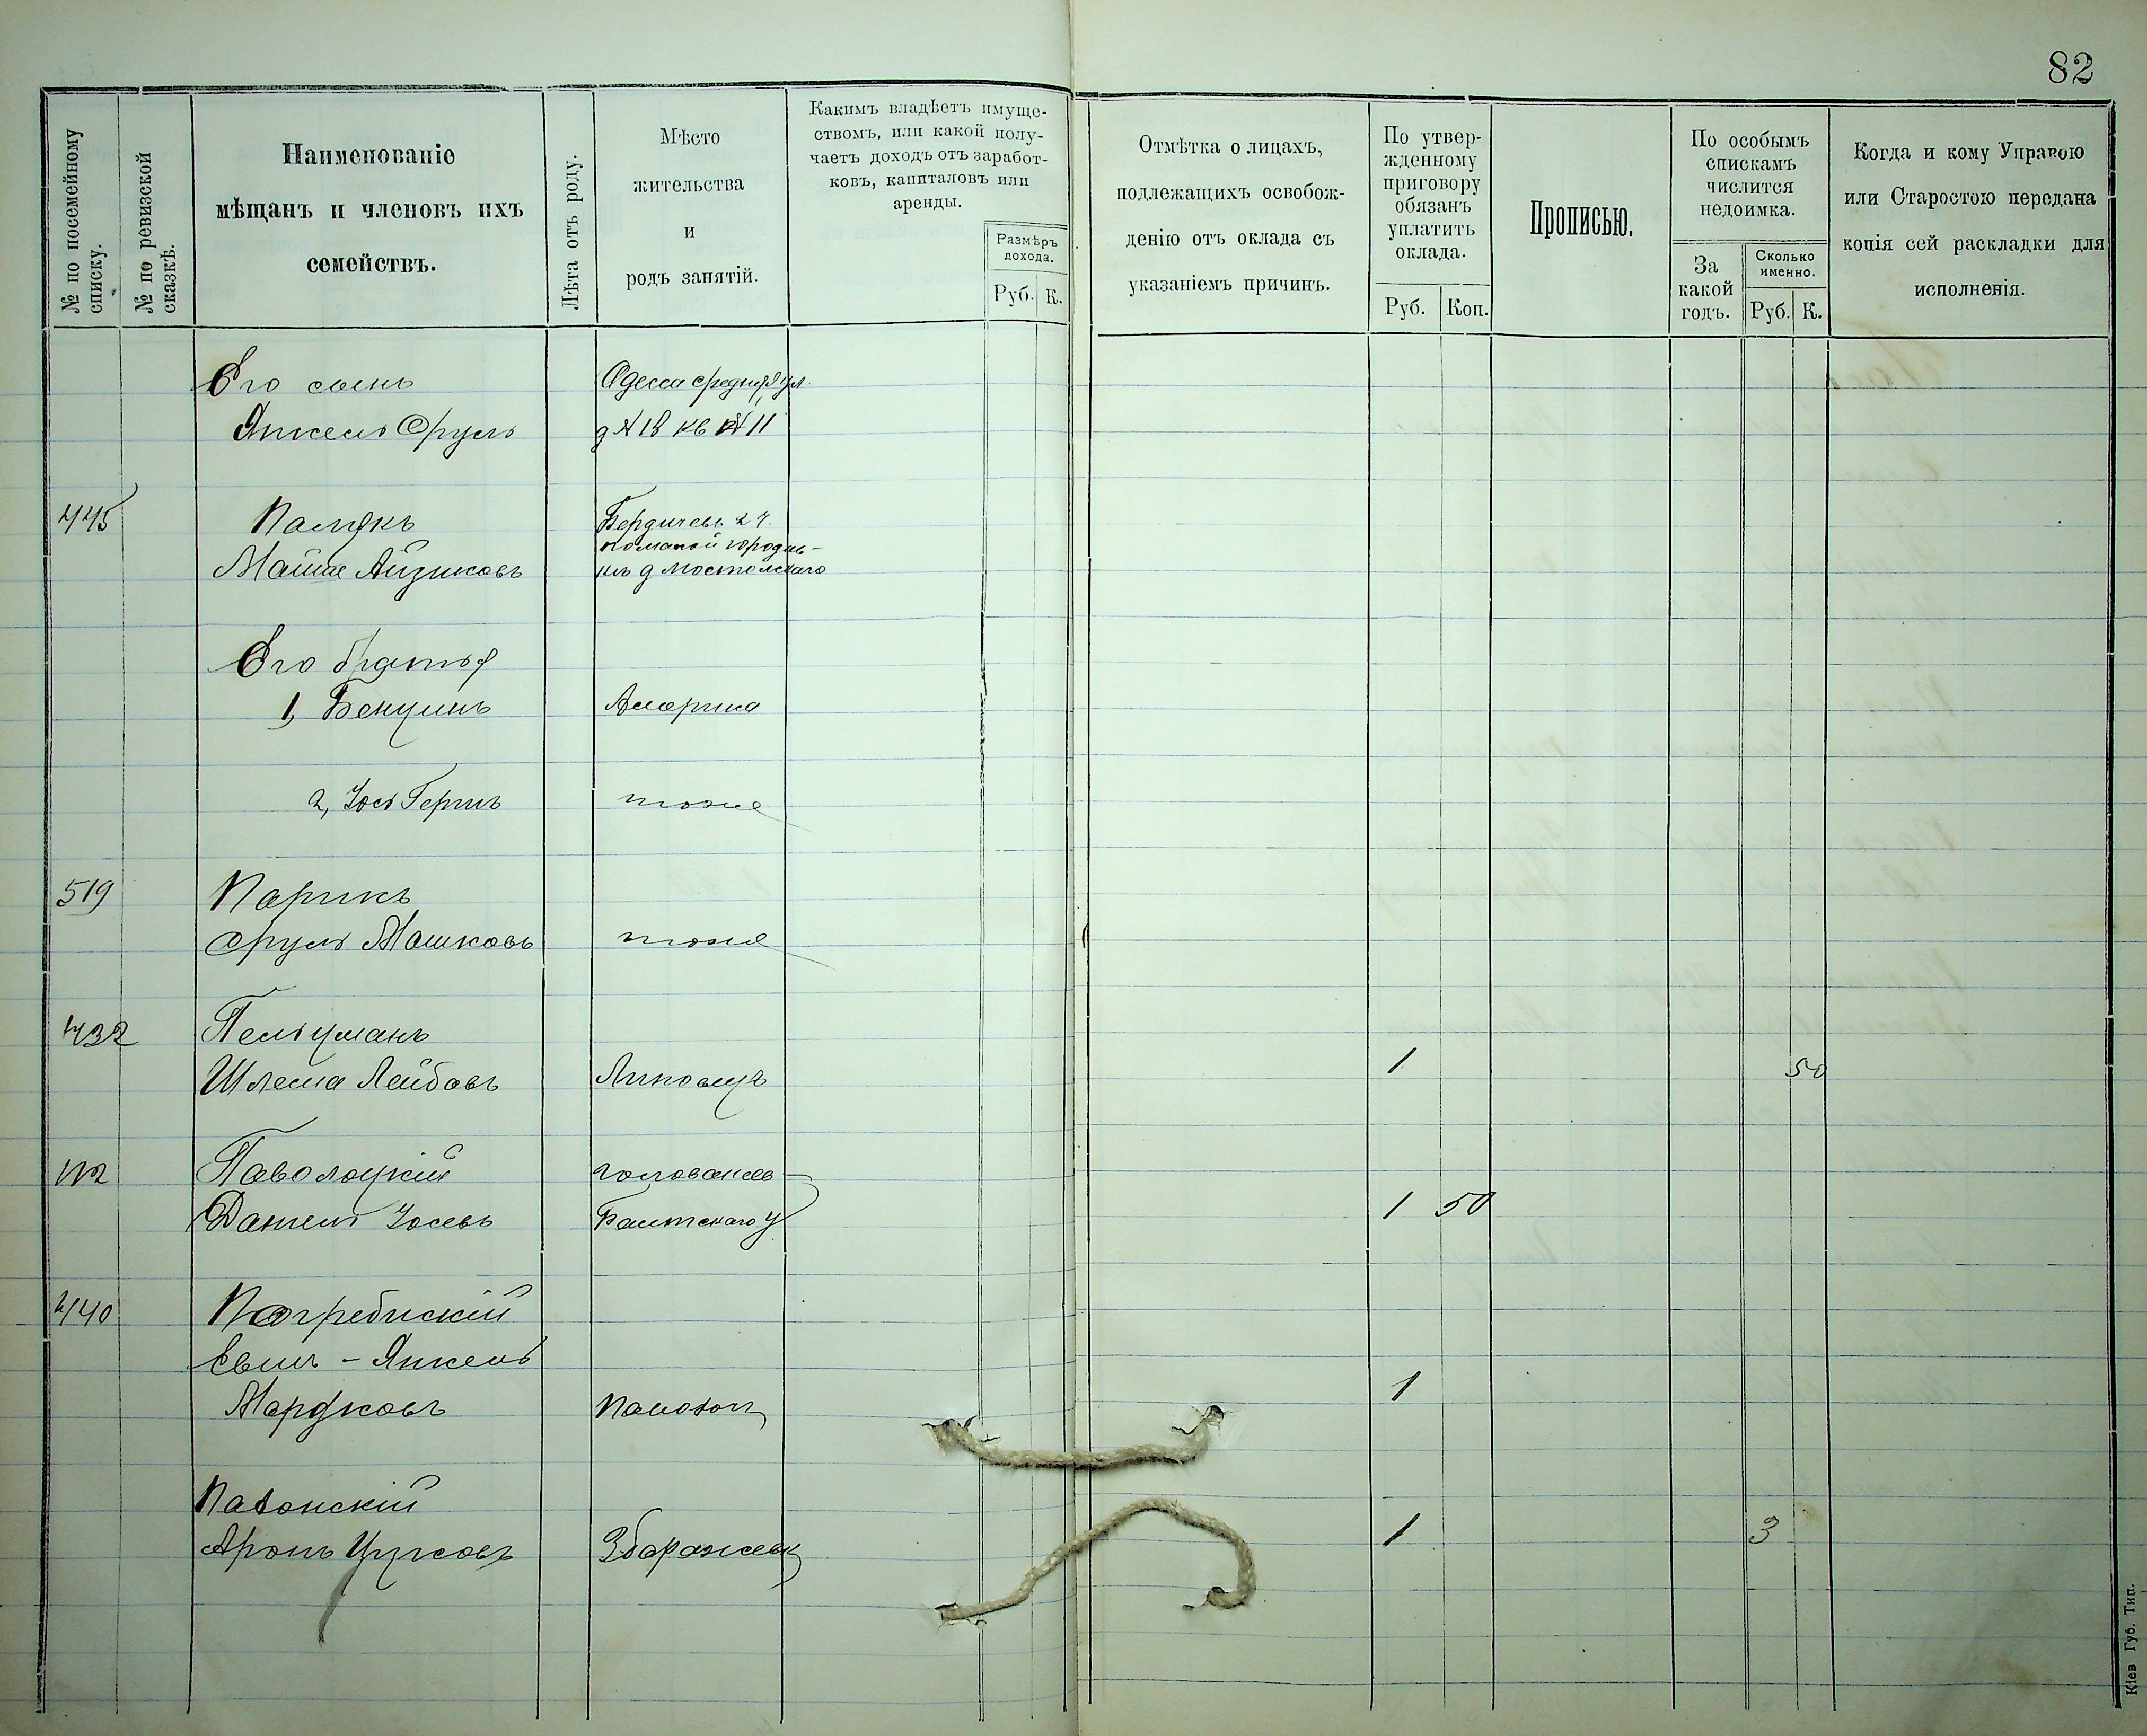 82
№ по посемейному
списку.
№ по ревизской
сказкѣ.
Наименованіе
мѣщанъ и членовъ ихъ
семействъ.
Лѣта отъ роду.
Мѣсто
жительства
и
родъ занятій.
Какимъ владѣетъ имуще-
ствомъ, или какой полу-
чаетъ доходъ отъ заработ-
ковъ, капиталовъ или
аренды.
Размѣръ
дохода.
Руб. К.
Отмѣтка о лицахъ,
подлежащихъ освобож-
денію отъ оклада съ
указаніемъ причинъ.
По утвер-
жденному
приговору
обязанъ
уплатить
оклада.
Руб. Коп.
Прописью.
По особымъ
спискамъ
числится
недоимка.
За
какой
годъ.
Сколько
именно.
Руб. К.
Когда и кому Управою
или Старостою передана
копія сей раскладки для
исполненія.
Его сынъ Одесса средняя ул.
Янкель Сруль д № 18 кв № 11
445 Бердичевъ 2 ч.
Айзиковъ д
Его братья
1, Америка
2, Іось Гершъ тоже
519 Парикъ
Сруль Машковъ тоже
432 Пельцманъ
Шлема Лейбовъ Липовецъ 1 50
112 Паволоцкій
Даніель Іосевъ Балтскаго у 1 50
440 Погребискій
Янкель
Мардковъ 1
Аронъ 1 3
Кіев Губ. Тип.